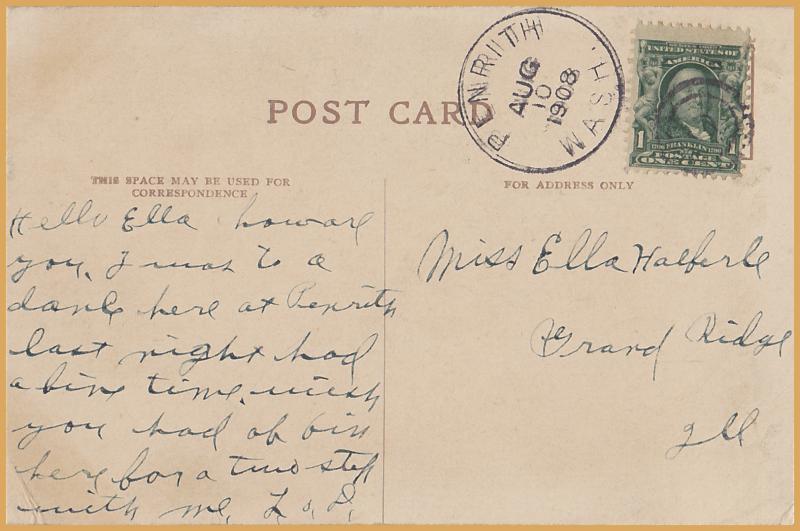 POST CARD
PENRITH WASH.
AUG
10
1908
UNITED STATES OF
AMERICA
1 1706 FRANKLIN 1790 1
POSTAGE
ONE CENT
THIS SPACE MAY BE USED FOR
CORRESPONDENCE
FOR ADDRESS ONLY
Hello Ella howare
you. I was to a
dance here at Penrith
last night had
a fine time. wish
you had of bin
here for a two step
with me. L. D.
Miss Ella Halferle
Grand Ridge
Ill